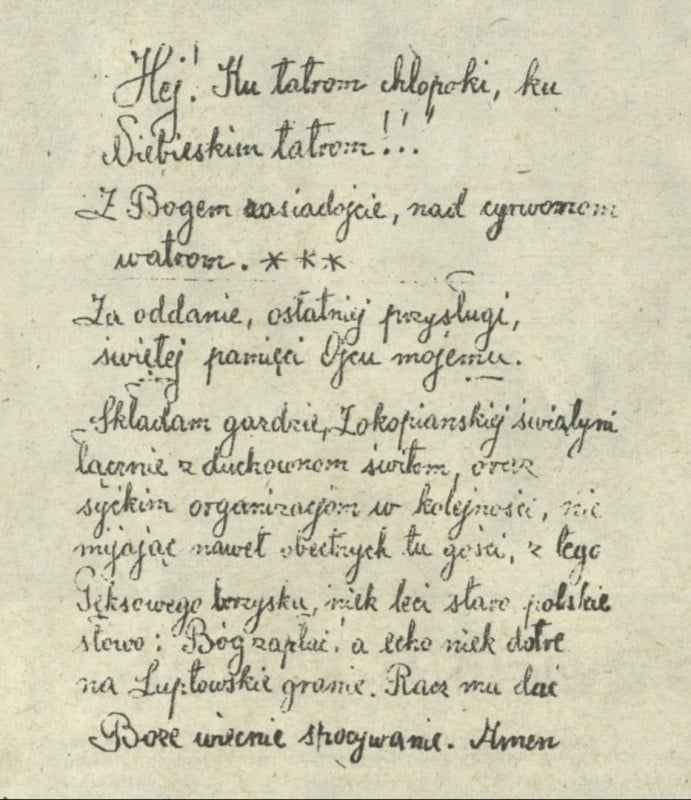 Hej! Ku tatrom chłopoki, ku
Niebieskim tatrom!!!"
Z Bogem zasiadojcie, nad cyrwonom
watrom. ***
Za oddanie, ostatniej przysługi,
świętej pamięci Ojcu mojemu.
Składam gazdzie, Zokopianskiej świątyni
łącznie z duchownom świtom, oraz
syćkim organizacjom w kolejności, nie
mijając nawet obecnych tu gości, z tego
Pęksowego brzysku, niek leci staro polskie
słowo: Bóg zapłać! a echo niek dotre
na Luptowskie granie. Racz mu dać
Boże wiecnie spocywanie. Amen